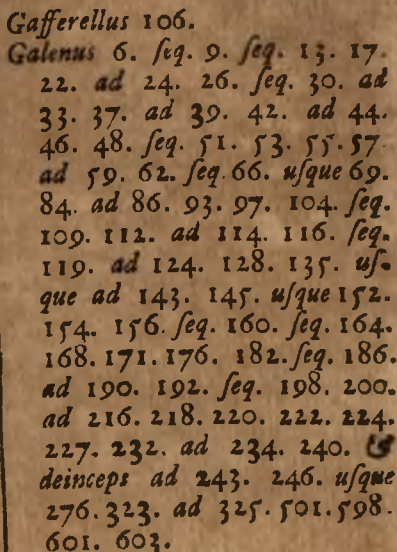 Gafferellus 106.
Galenus 6. ſeq. 9. ſeq. 13. 17.
22. ad 24. 26. ſeq. 30. ad
33. 37. ad 39. 42. ad 44.
46. 48. ſeq. 51. 53. 55. 57
ad 59. 62. ſeq. 66. uſque 69.
84. ad 86. 93. 97. 104. ſeq.
109. 112. ad 114. 116. ſeq.
119. ad 124. 128. 135. uſ-
que ad 143. 145. uſque 152.
154. 156. ſeq. 160. ſeq. 164.
168. 171. 176. 182. ſeq. 186.
ad 190. 192. ſeq. 198. 200.
ad 216. 218. 220. 222. 224.
227. 232. ad 234. 240. &
deinceps ad 243. 246. uſque
276. 323. ad 325. 501. 598.
601. 603.